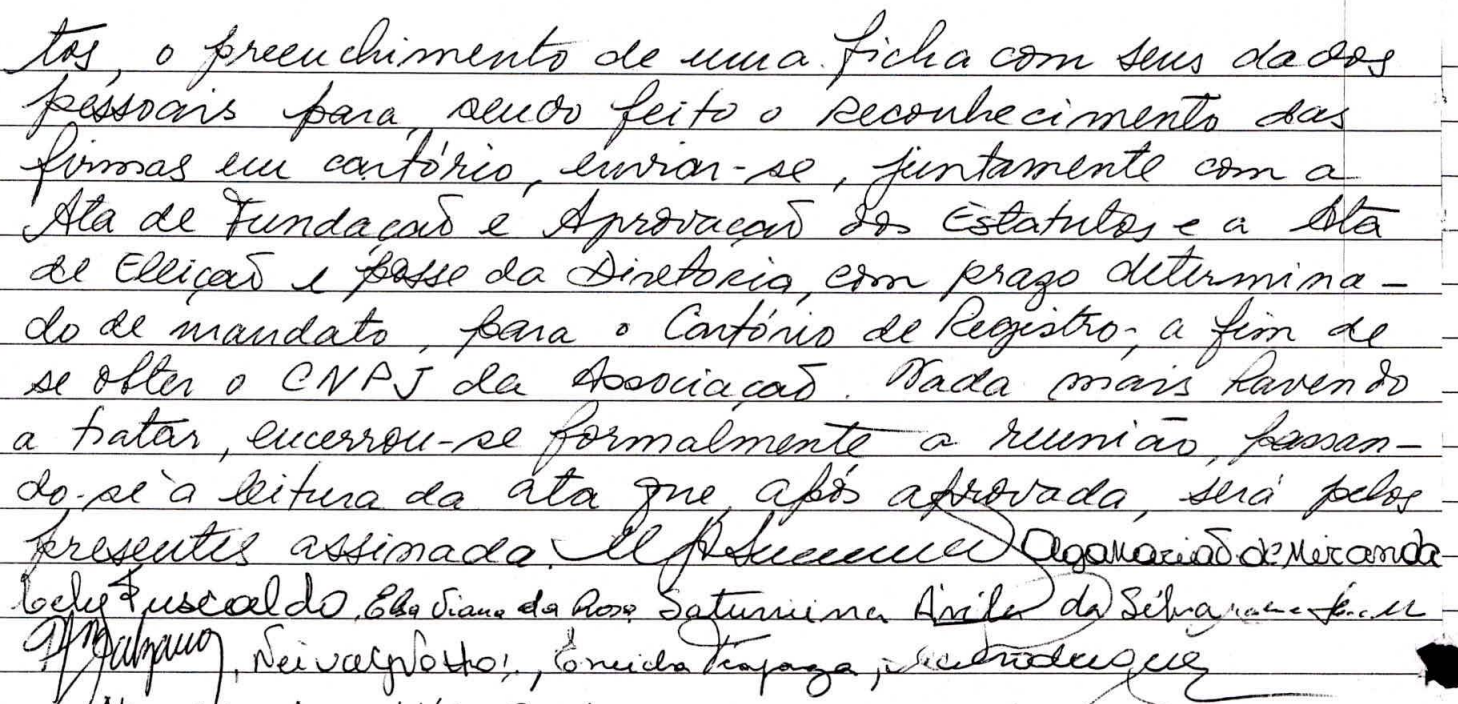 tos, o preenchimento de uma ficha com seus dados
pessoais para, sendo feito o reconhecimento das
firmas em cartório, enviar-se, juntamente com a
Ata de Fundação e Aprovação dos Estatutos e a Ata
de Elleição e posse da Diretoria, com prazo determina-
do de mandato, para o Cartório de Registro, a fim de
se obter o CNPJ da Associação. Nada mais havendo
a tratar, encerrou-se formalmente a reunião, passan-
do-se à leitura da ata que, após aprovada, será pelos
presentes assinada. de Miranda
Fuscaldo, Elba Viana da Rosa, Saturnina Ávila da Silva
Eneida